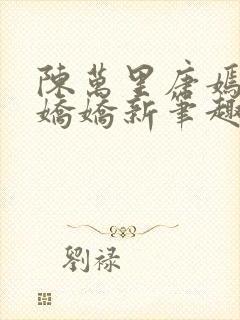 陳萬里唐嫣
嬌嬌新筆趣
劉祿